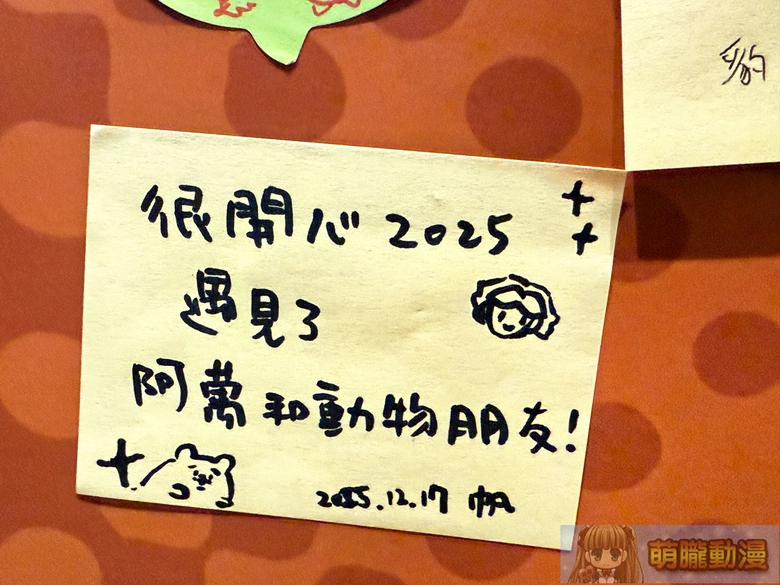 豹
很開心 2025
遇見了
阿萬和動物朋友!
2025.12.17 帆
萌朧動漫